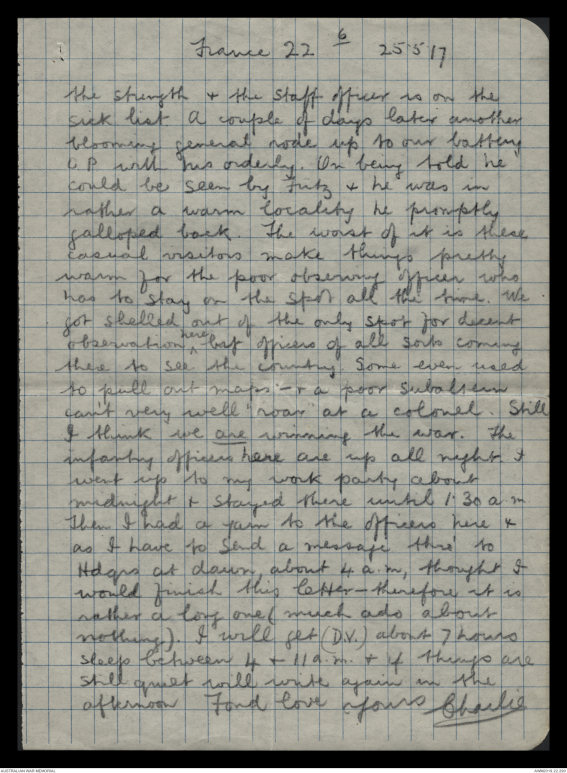 6
France 22 25.5.17
the strength + the staff officer is on the
sick list A couple of days later another
blooming general rode up to our battery
O P with his orderly. On being told he
could be seen by Fritz + he was in
rather a warm locality he promptly
galloped back. The worst of it is these
casual visitors make things pretty
warm for the poor observing officer who
has to stay on the spot all the time. We
got shelled out of the only spot for decent
here
observation by officers of all sorts coming
there to see the country. Some even used
to pull out maps - + a poor subaltern
can't very well "roar" at a colonel. Still
I think we are winning the war. The
infantry officers here are up all night I
went up to my work party about
midnight + stayed there until 1.30 a.m
Then I had a yarn to the officers here +
as I have to send a message thro' to
Hdqrs at dawn, about 4 a.m, thought I
would finish this letter - therefore it is
rather a long one (much ado about
nothing). I will get (D.V.) about 7 hours
sleep between 4 + 11 a.m. + if things are
still quiet will write again in the
afternoon Fond love yours Charlie
AUSTRALIAN WAR MEMORIAL